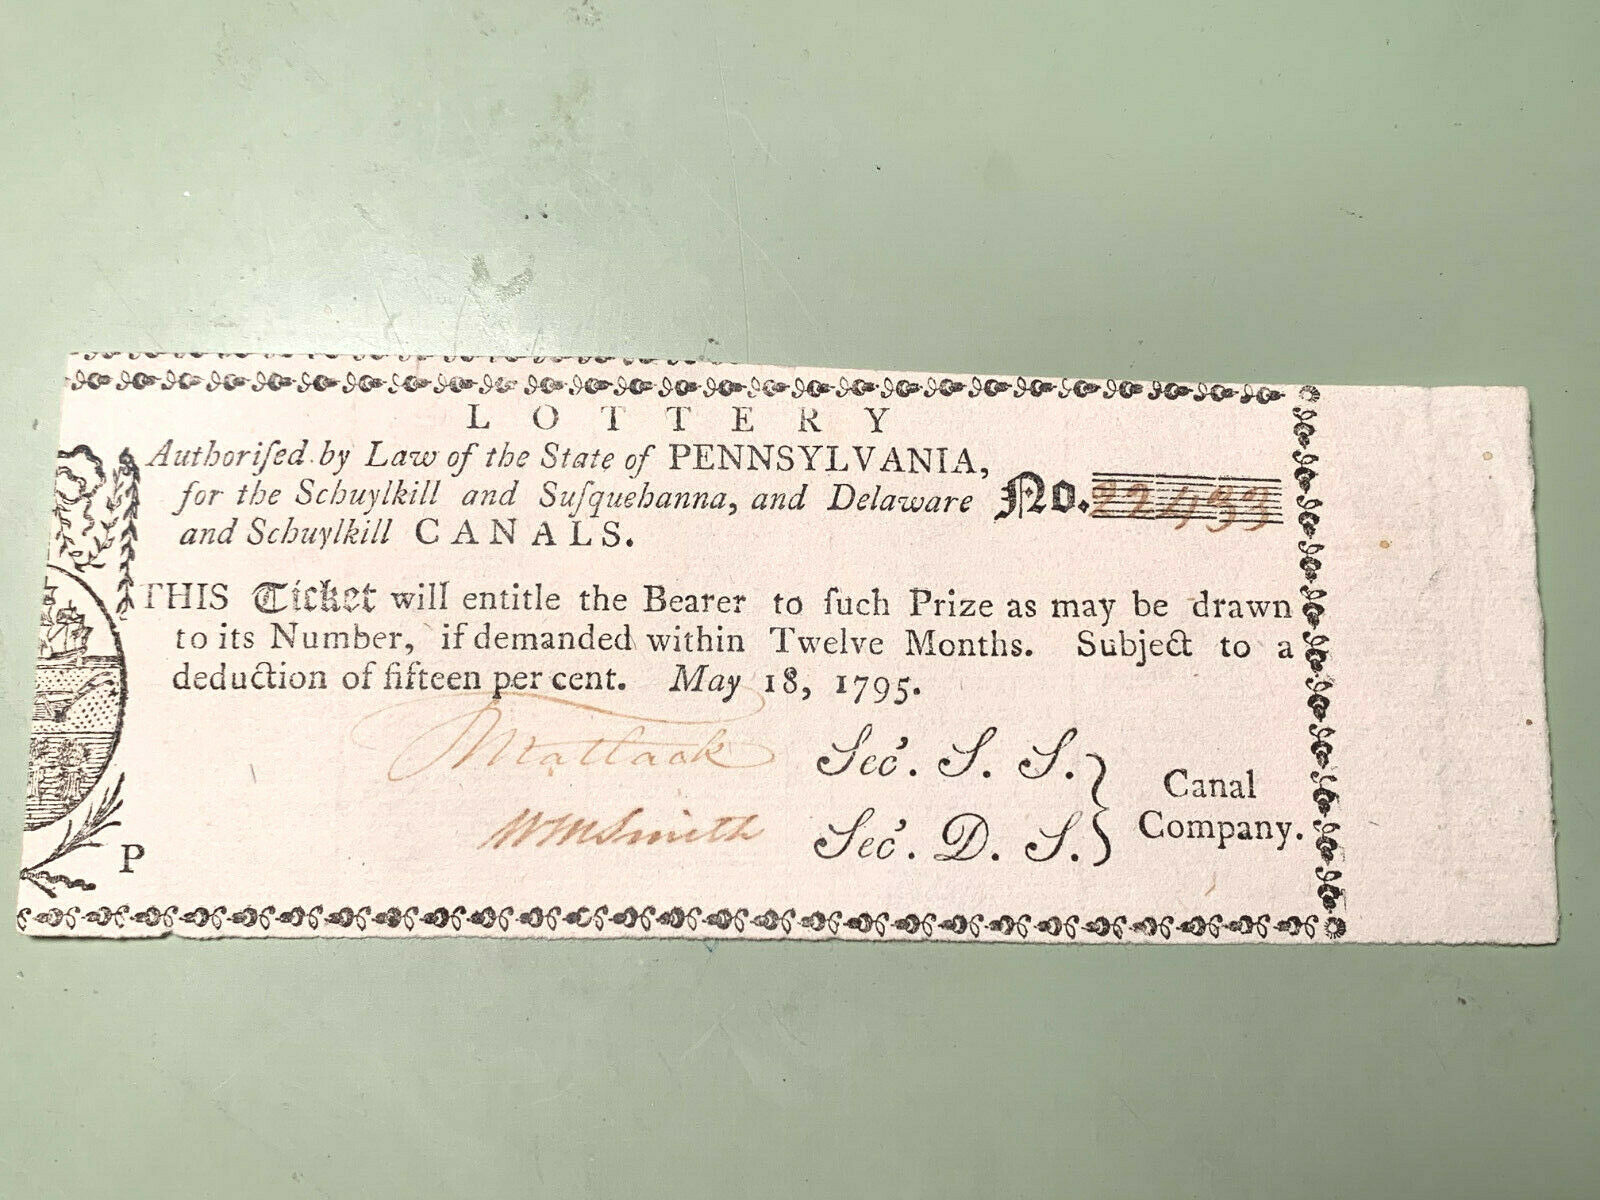 LOTTERY
Authoriſed by Law of the State of PENNSYLVANIA,
for the Schuylkill and Suſquehanna, and Delaware
and Schuylkill CANALS.
No. 22433
THIS Ticket will entitle the Bearer to ſuch Prize as may be drawn
to its Number, if demanded within Twelve Months. Subject to a
deduction of fifteen per cent. May 18, 1795.
TMatlack Sec'. S. S.
WmMSmith Sec'. D. S.
Canal
Company.
P